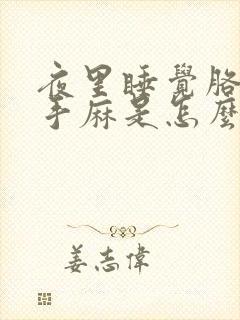 夜里睡覺胳
手麻是怎麼
姜志偉